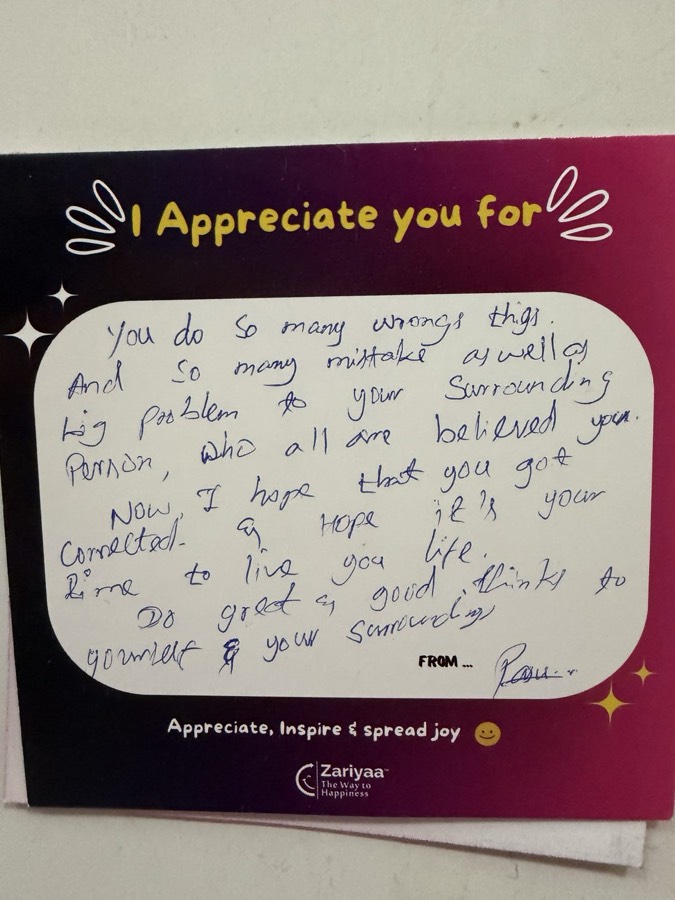 I Appreciate you for
You do so many wrongs thigs.
And so many mistake as well as
big problem to your Surrounding
Person, who all are believed you.
Now, I hope that you got
Corrected. & Hope it's your
time to live you life.
Do great & good thinks to
yourself & your Surrounding
FROM ...
Appreciate, Inspire & spread joy
Zariyaa™
The Way to
Happiness